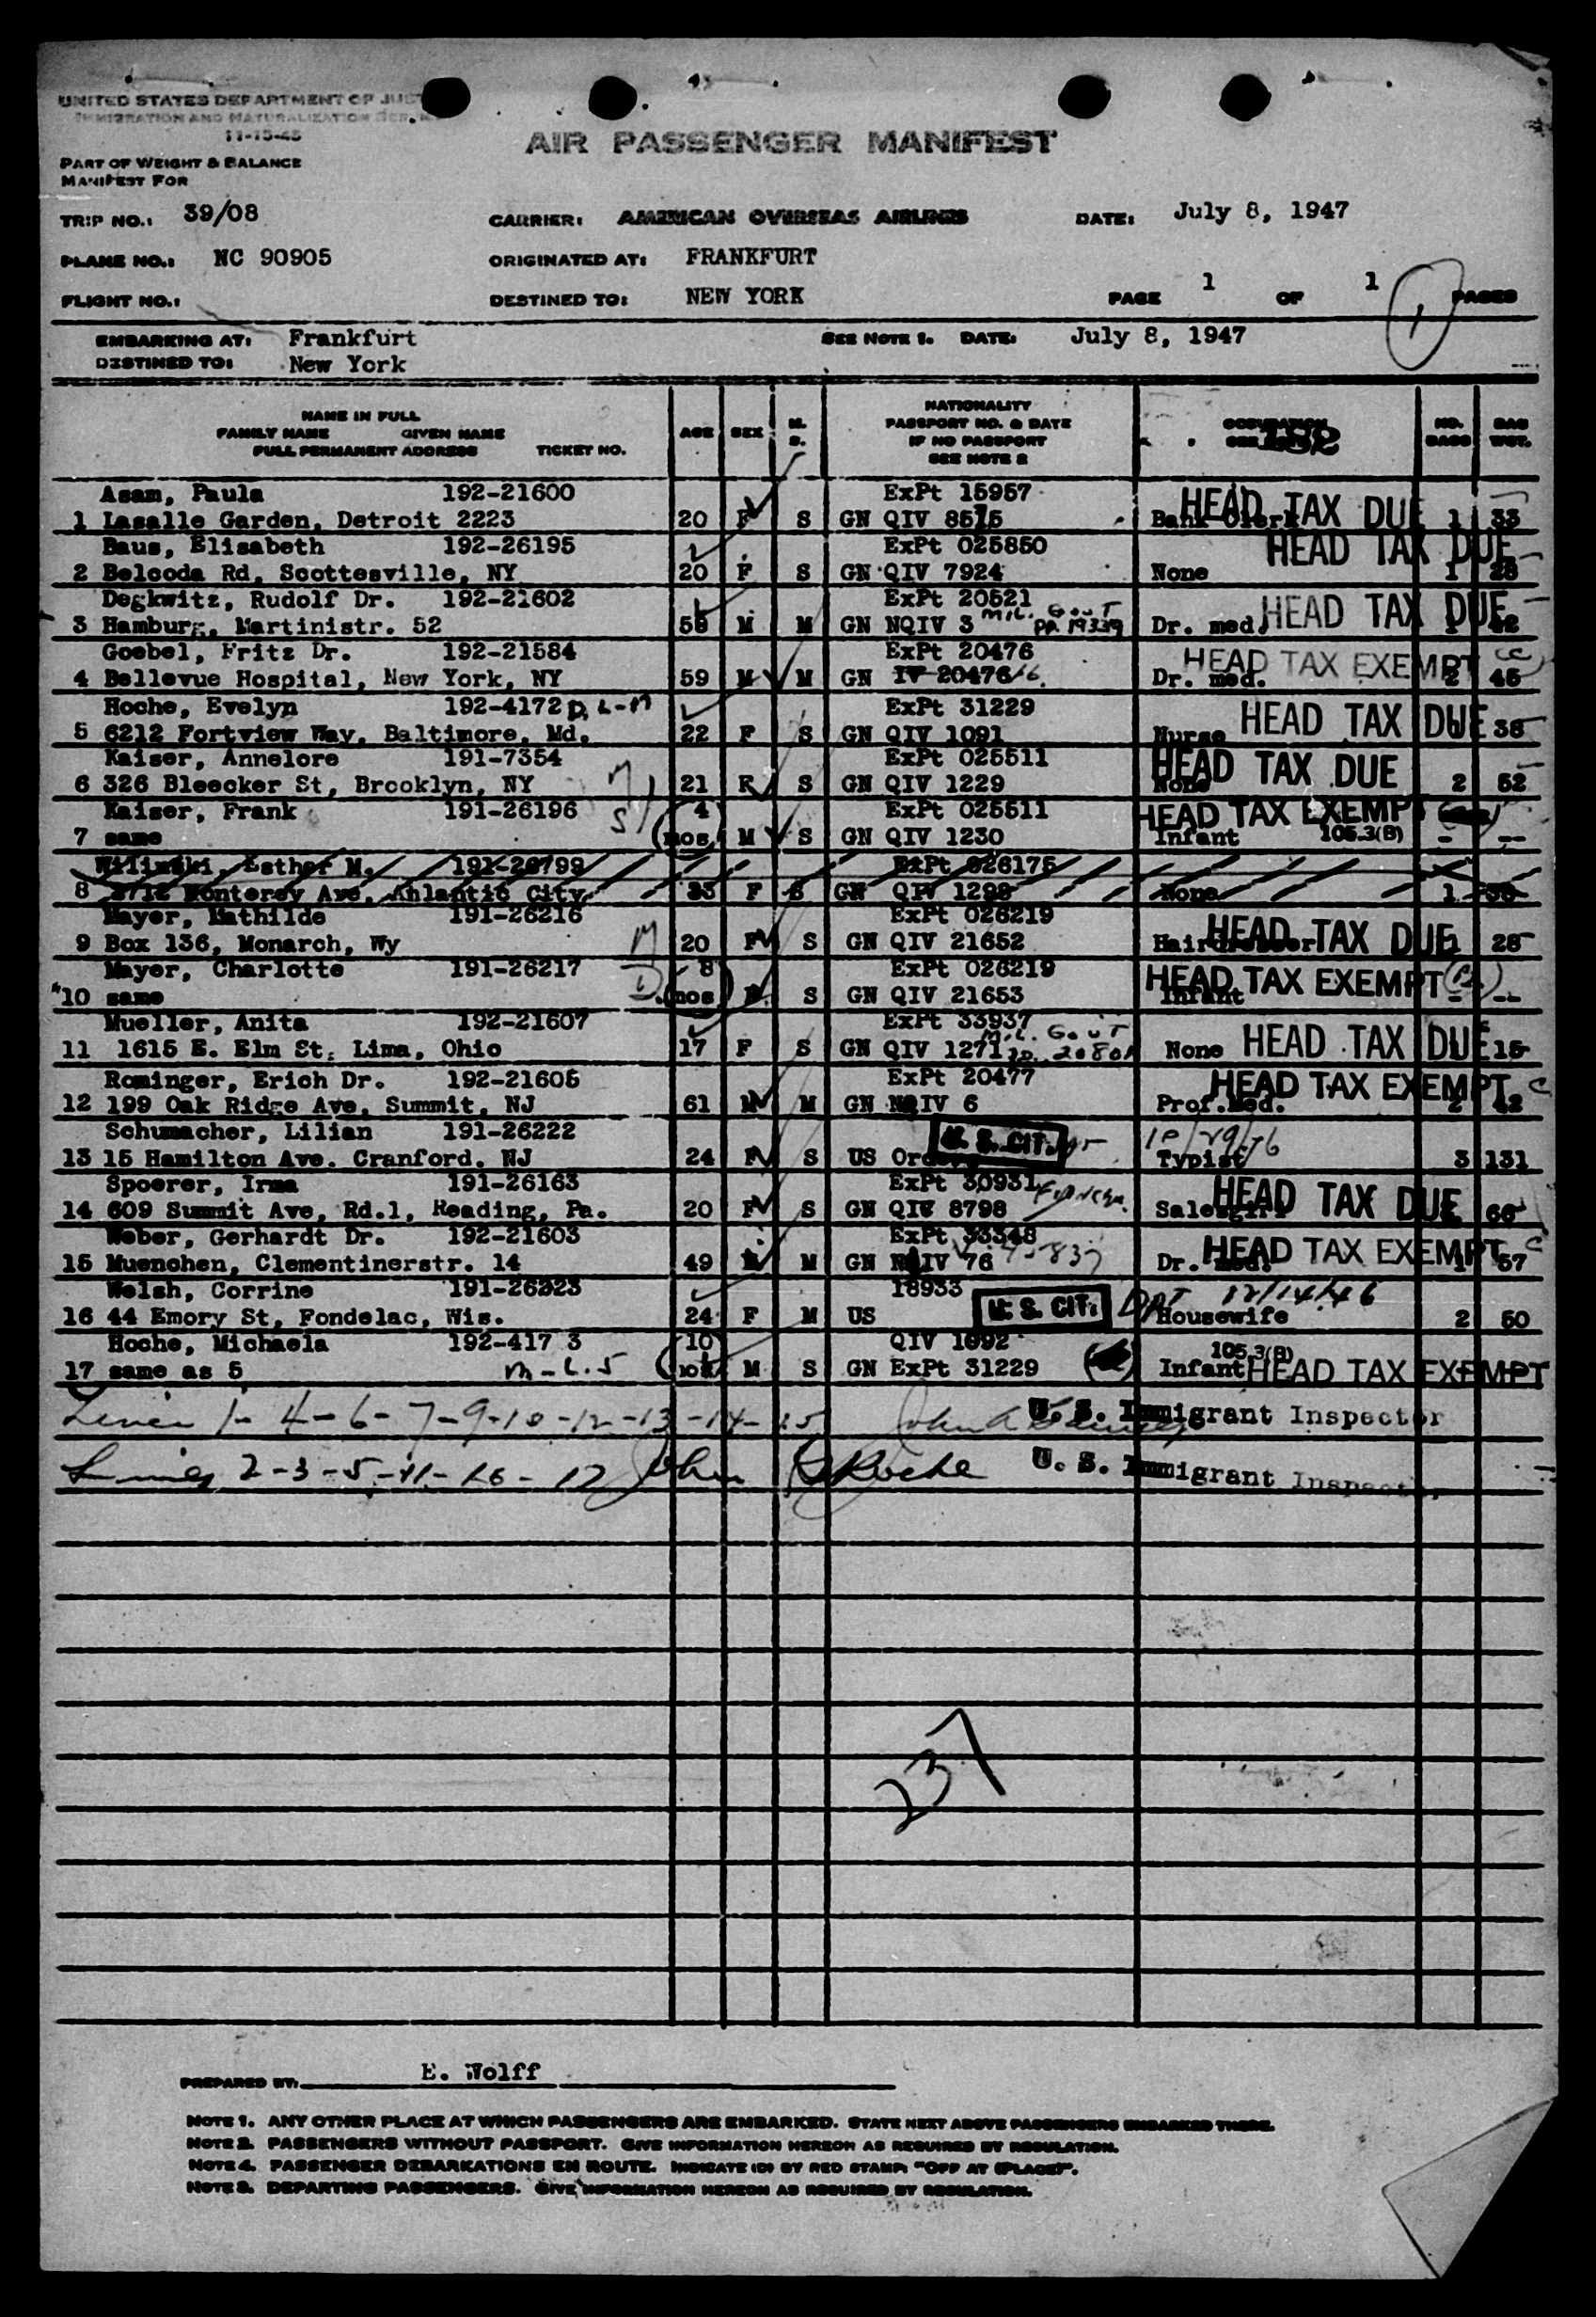 UNITED STATES DEPARTMENT OF JUS
IMMIGRATION AND NATURALIZATION
11-15-45
AIR PASSENGER MANIFEST
PART OF WEIGHT & BALANCE
MANIFEST FOR
TRIP NO.: 39/08 CARRIER: AMERICAN OVERSEAS AIRLINES DATE: July 8, 1947
PLANE NO.: NC 90905 ORIGINATED AT: FRANKFURT
FLIGHT NO.: DESTINED TO: NEW YORK PAGE 1 OF 1 PAGES
1
EMBARKING AT: Frankfurt SEE NOTE 1. DATE: July 8, 1947
DESTINED TO: New York
NAME IN FULL
FAMILY NAME GIVEN NAME
FULL PERMANENT ADDRESS TICKET NO.
AGE SEX M. S.
NATIONALITY
PASSPORT NO. & DATE
IF NO PASSPORT
SEE NOTE 2
OCCUPATION
NO. BAGS BAG WGT.
Asam, Paula 192-21600 ExPt 15957 HEAD TAX DUE
1 Lasalle Garden, Detroit 2223 20 F S GN QIV 8575 Bank Clerk 1 33
Baus, Elisabeth 192-26195 ExPt 025850 HEAD TAX DUE
2 Belcoda Rd, Scottesville, NY 20 F S GN QIV 7924 None 1 28
Degkwitz, Rudolf Dr. 192-21602 ExPt 20521 HEAD TAX DUE
3 Hamburg, Martinistr. 52 58 M M GN NQIV 3 Mil. Gov't Dr. med. 42
Goebel, Fritz Dr. 192-21584 ExPt 20476 HEAD TAX EXEMPT
4 Bellevue Hospital, New York, NY 59 M M GN IV 20476 Dr. med. 2 45
Hoche, Evelyn 192-4172 ExPt 31229 HEAD TAX DUE
5 6212 Fortview Way, Baltimore, Md. 22 F S GN QIV 1091 Nurse 38
Kaiser, Annelore 191-7354 ExPt 025511 HEAD TAX DUE
6 326 Bleecker St, Brooklyn, NY M 21 F S GN QIV 1229 None 2 52
Kaiser, Frank 191-26196 S 4 ExPt 025511 HEAD TAX EXEMPT
7 same (mos) M S GN QIV 1230 Infant 105.3(B) - --
Wilinski, Esther M. 191-26799 ExPt 026175
8 3712 Monterey Ave, Ahlantic City 33 F S GN QIV 1298 None 1
Mayer, Mathilde 191-26216 ExPt 026219 HEAD TAX DUE
9 Box 136, Monarch, Wy M 20 F S GN QIV 21652 Hairdresser 28
Mayer, Charlotte 191-26217 D 8 ExPt 026219 HEAD TAX EXEMPT
10 same (mos) S GN QIV 21653 Infant - --
Mueller, Anita 192-21607 ExPt 33937 Mil. Gov't
11 1615 E. Elm St, Lima, Ohio 17 F S GN QIV 1271 None HEAD TAX DUE 15
Rominger, Erich Dr. 192-21605 ExPt 20477 HEAD TAX EXEMPT
12 199 Oak Ridge Ave, Summit, NJ 61 M M GN NQIV 6 Prof.Med. 2 42
Schumacher, Lilian 191-26222 U. S. CIT. 10/29/76
13 15 Hamilton Ave. Cranford, NJ 24 F S US Typist 3 131
Spoerer, Irma 191-26163 ExPt 30931 HEAD TAX DUE
14 609 Summit Ave, Rd.1, Reading, Pa. 20 F S GN QIV 8798 Salesgirl 66
Weber, Gerhardt Dr. 192-21603 ExPt 33348 HEAD TAX EXEMPT
15 Muenchen, Clementinerstr. 14 49 M M GN NQIV 76 Dr. med. 57
Welsh, Corrine 191-26223 18933 U. S. CIT. 12/14/46
16 44 Emory St, Fondelac, Wis. 24 F M US Housewife 2 50
Hoche, Michaela 192-417 3 10 QIV 1092 105.3(B)
17 same as 5 M S GN ExPt 31229 Infant HEAD TAX EXEMPT
Lines 1-4-6-7-9-10-12-13-14-15 John U. S. Immigrant Inspector
Lines 2-3-5-11-16-17 John Roche U. S. Immigrant Inspector
237
PREPARED BY: E. Wolff
NOTE 1. ANY OTHER PLACE AT WHICH PASSENGERS ARE EMBARKED. STATE NEXT ABOVE PASSENGERS EMBARKED THERE.
NOTE 2. PASSENGERS WITHOUT PASSPORT. GIVE INFORMATION HEREON AS REQUIRED BY REGULATION.
NOTE 4. PASSENGER DEBARKATIONS EN ROUTE. INDICATE (D) BY RED STAMP: "OFF AT (PLACE)".
NOTE 3. DEPARTING PASSENGERS. GIVE INFORMATION HEREON AS REQUIRED BY REGULATION.